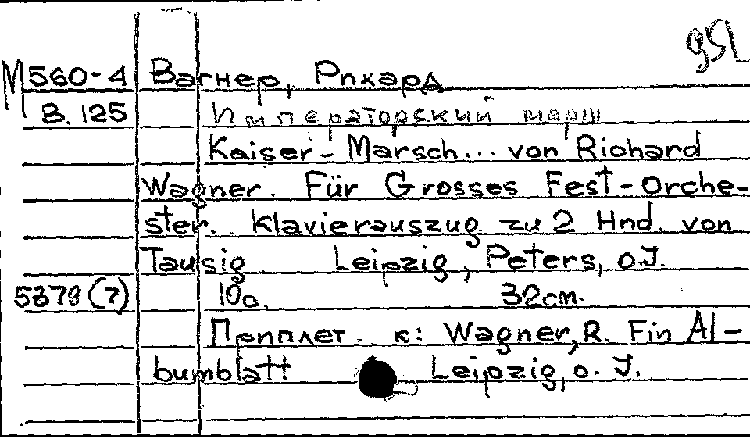 952
М560-4 Вагнер, Рихард
В. 125 Императорский марш
Kaiser-Marsch... von Richard
Wagner. Für Grosses Fest-Orche-
ster. Klavierauszug zu 2 Hnd. von
Tausig. Leipzig, Peters, o.J.
5379 (7) 10с. 32cm.
Приплет. к: Wagner, R. Ein Al-
bumblatt Leipzig, o. J.